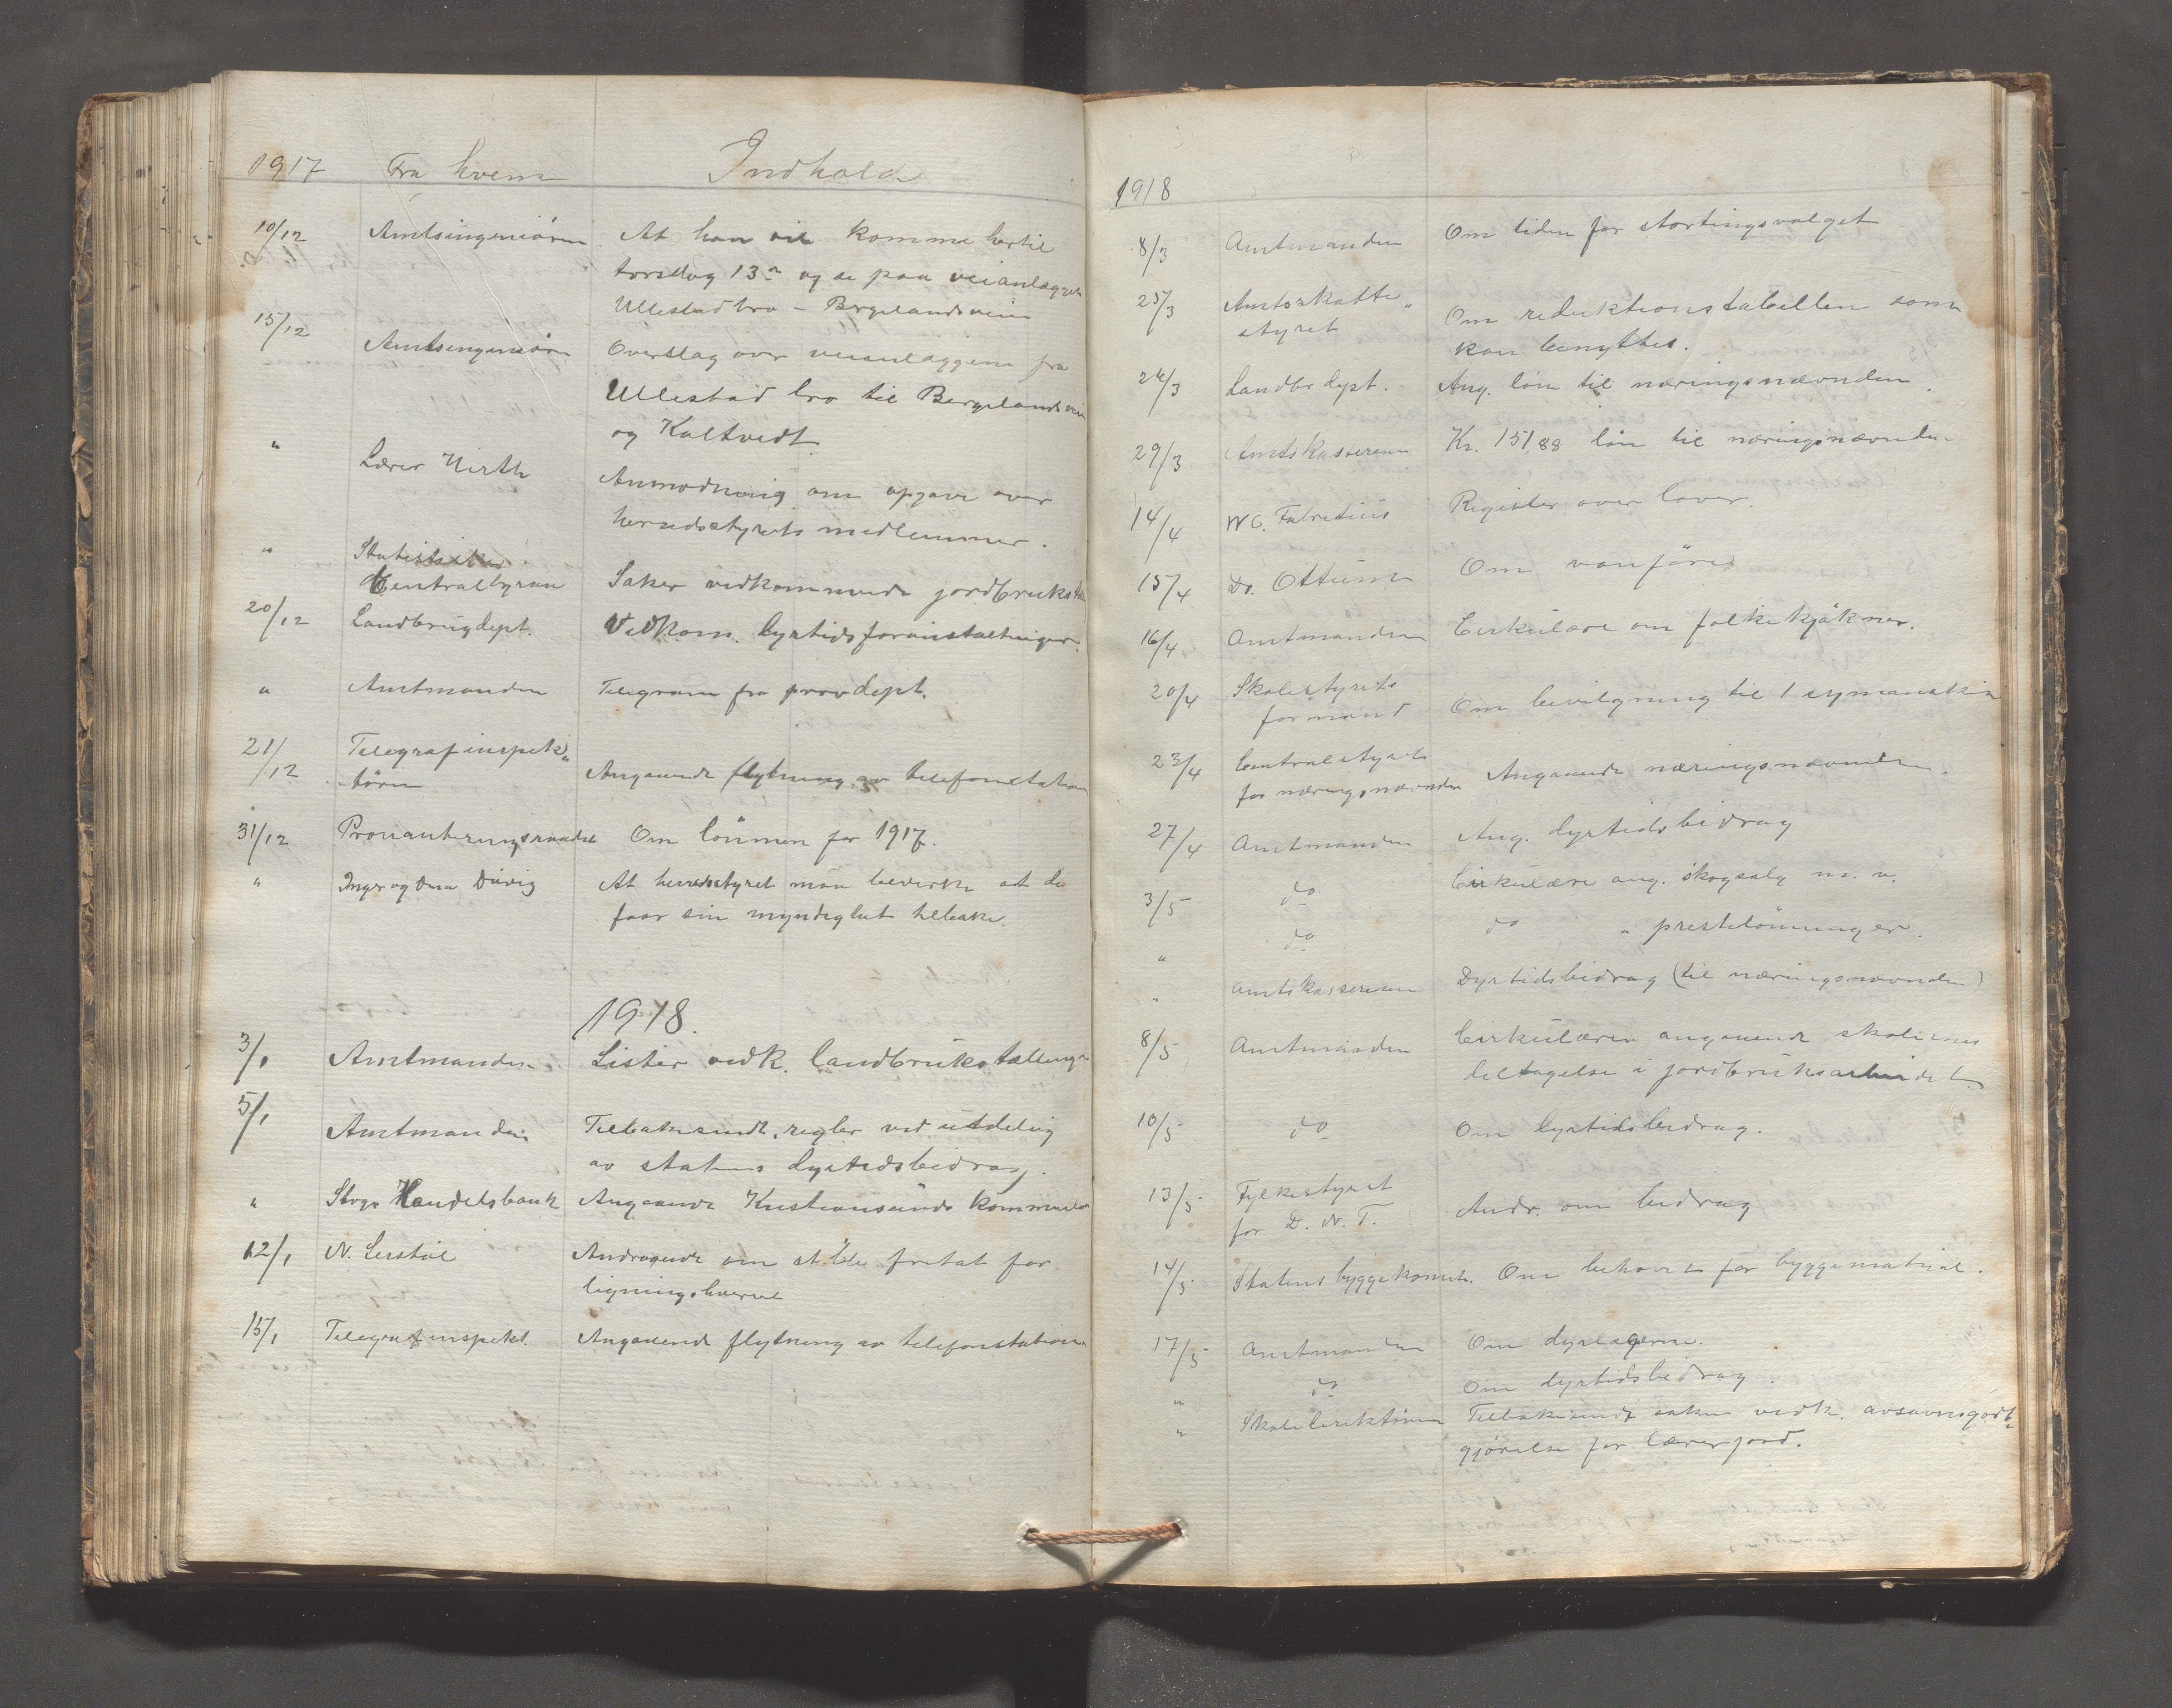 1917 Fra hvem Indhold
10/12 Amtsingeniøren At han vil komme hertil
torsdag 13de og se paa veianlægget
Ullestad bro – Bergelandsveien
15/12 Amtsingeniøren Overslag over veianlæggene fra
Ullestad bro til Bergelandsveien
og Kaltvedt
" Lærer Hirth Anmodning om opgave over
herredsstyrets medlemmer.
" Statistiske
Centralbyraa Saker vedkommende jordbruks
20/12 Landbrugdept. Vedkom. dyrtidsforanstaltninger.
" Amtmanden Telegram fra provdept.
21/12 Telegrafinspek"
tøren Angaaende flytning av telefonstation
31/12 Provianteringsraadet Om lønnen for 1917.
" Inger og Düvig At herredsstyret maa bevirke at de
faar sin myndighet tilbake.
1918.
3/1 Amtmanden Lister vedk. landbrukstællingen
5/1 Amtmanden Tilbakesendt, regler ved utdeling
av statens dyrtidsbidrag.
" Stvgr Handelsbank Angaaende Kristiansunds kommunelaan
12/1 N. Leistøl Andragende om at bli fritat for
ligningshvervet
15/1 Telegrafinspekt. Angaaende flytning av telefonstationen
1918
8/3 Amtmanden Om tiden for stortingsvalget
25/3 Amtsskatte"
styret Om reduktionstabellen som
kan benyttes.
26/3 Landbr dept. Ang. løn til næringsnævnden.
29/3 Amtskassereren Kr. 151,88 løn til næringsnævnden
14/4 W C. Fabritius Register over lover.
15/4 Dr. Ottum Om vanføre
16/4 Amtmanden Cirkulære om folkekjøkner.
20/4 Skolestyrets
formand Om bevilgning til 1 symaskin
23/4 Centralstyret
for næringsnævnden Angaaende næringsnævnden.
27/4 Amtmanden Ang. dyrtidsbidrag
3/5 do Cirkulære ang. skogsalg m. v.
" do do " prestelønninger.
" Amtskassereren Dyrtidsbidrag (til næringsnævnden)
8/5 Amtmanden Cirkulære angaaende skolenes
deltagelse i jordbruksarbeidet
10/5 do Om dyrtidsbidrag.
13/5 Fylkestyret
for D. N. T. Andr. om bidrag
14/5 Statens byggekomite. Om behovet for byggematrial.
17/5 Amtmanden Om dyrlægerne.
" do Om dyrtidsbidrag.
" Skoledirektøren Tilbakesendt saken vedk. avsavnsgodt"
gjørelse for lærerjord.